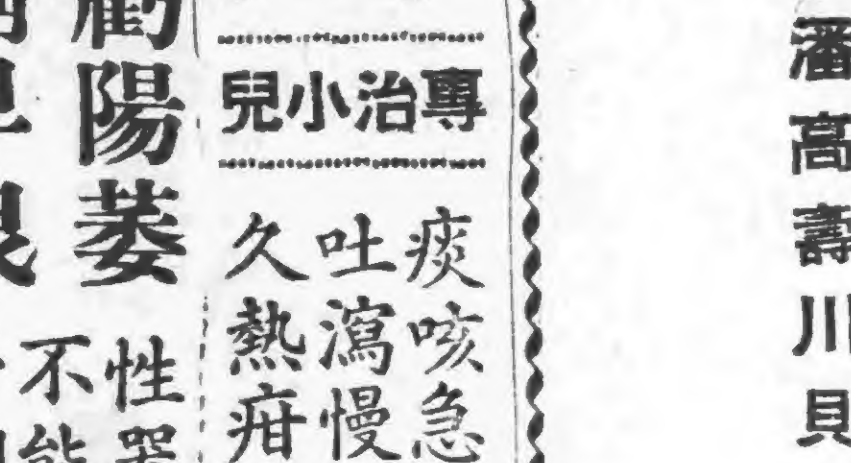 潘高壽川貝
專治小兒
痰咳急
吐瀉慢
久熱疳
陽萎
性器
不能